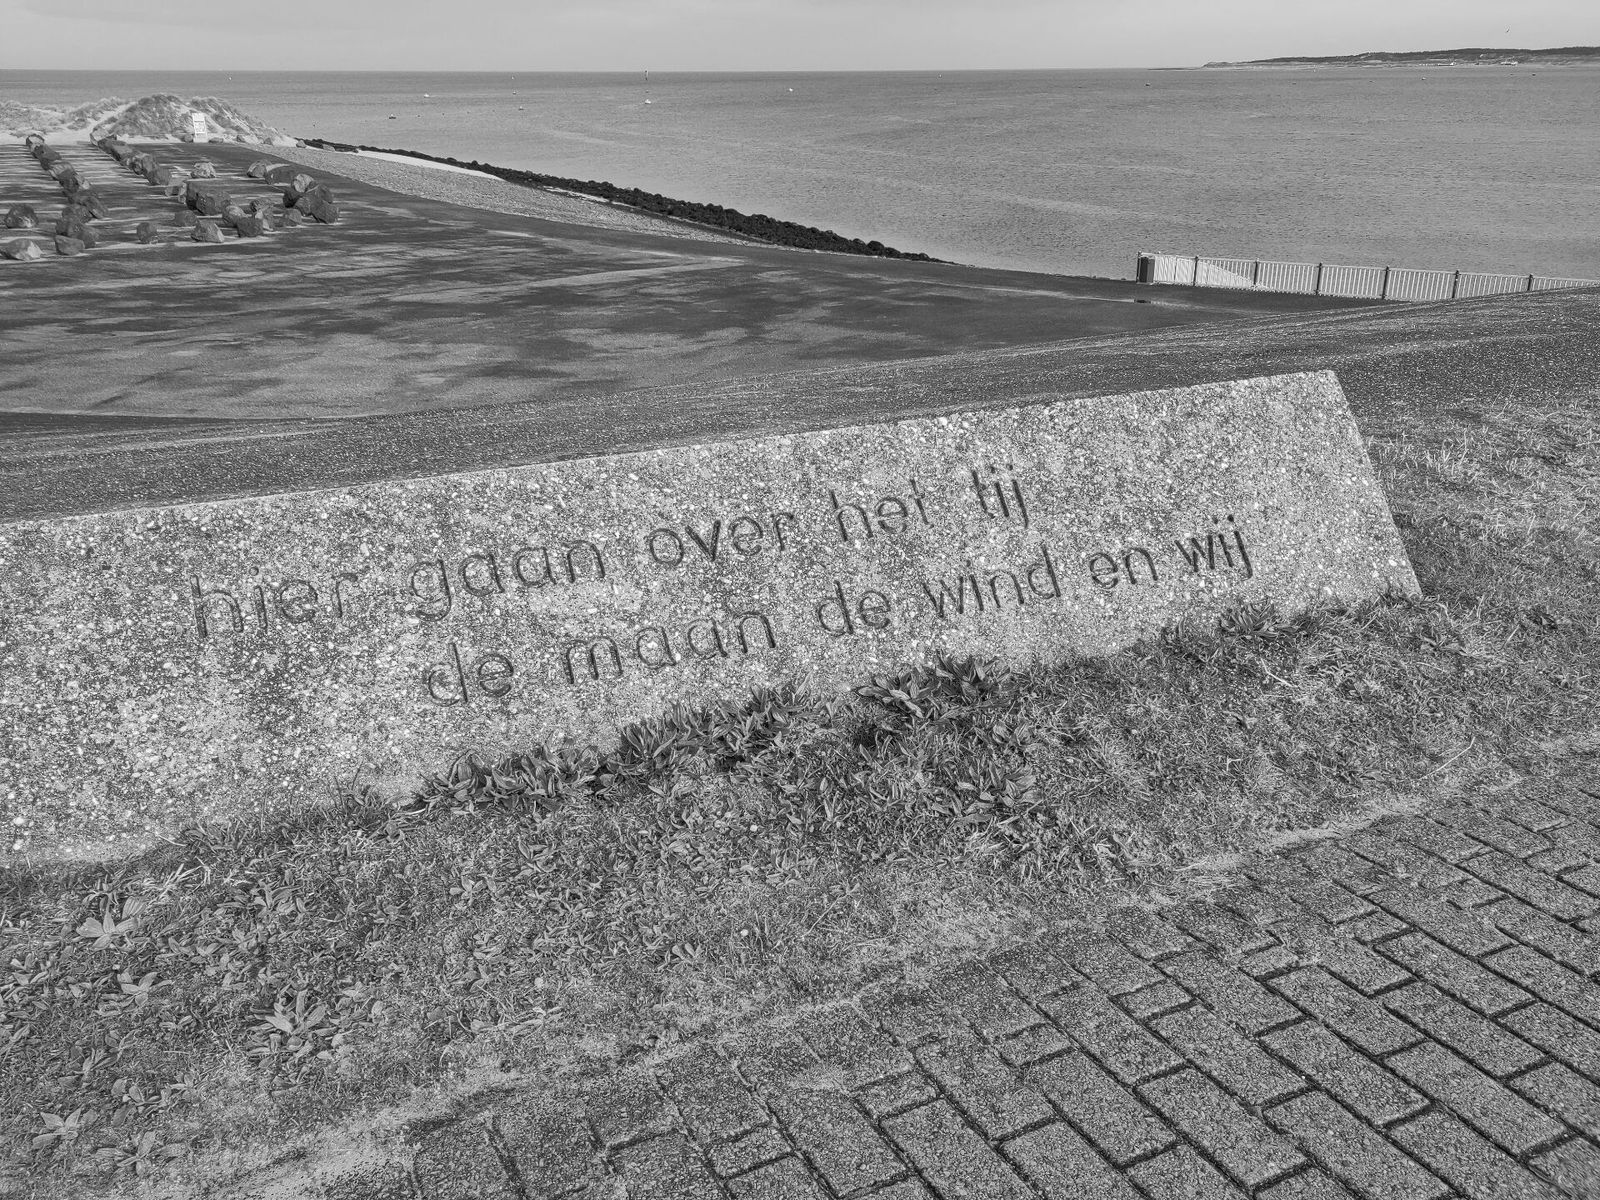 hier gaan over het tij
de maan de wind en wij